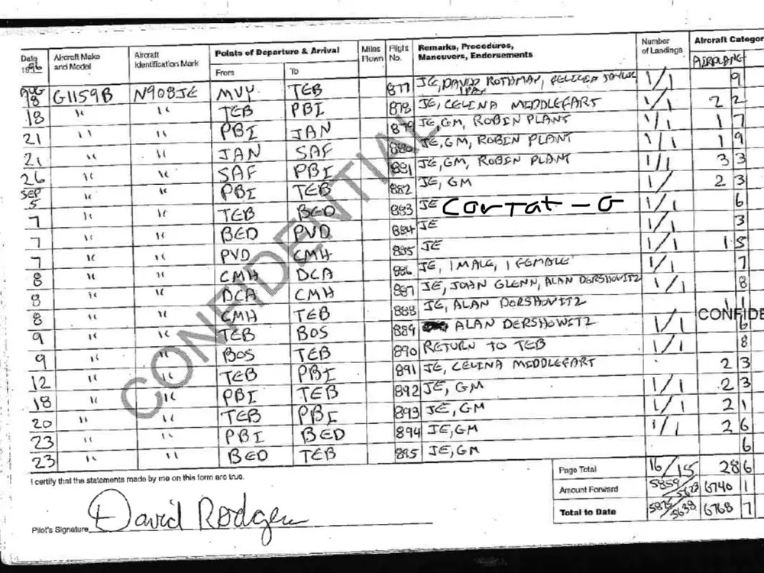 Date Aircraft Make and Model Aircraft Identification Mark Points of Departure & Arrival From To Miles Flown Flight No. Remarks, Procedures, Maneuvers, Endorsements Number of Landings Aircraft Categor
1996 AIRPLANE
AUG 18 G1159B N908JE MVY TEB 877 JE, DAVID ROTHMAN, 1/1 9
18 " " TEB PBI 878 JE, CELINA MIDDLEFART 1/1 2 2
21 " " PBI JAN 879 JE, GM, ROBIN PLANT 1/1 1 7
21 " " JAN SAF 880 JE, GM, ROBIN PLANT 1/1 1 9
26 " " SAF PBI 881 JE, GM, ROBIN PLANT 1/1 3 3
SEP 5 " " PBI TEB 882 JE, GM 1/ 2 3
7 " " TEB BED 883 JE CorTat - G 1/1 6
7 " " BED PVD 884 JE 1/ 3
7 " " PVD CMH 885 JE 1/1 1 5
8 " " CMH DCA 886 JE, 1 MALE, 1 FEMALE 1/1 7
8 " " DCA CMH 887 JE, JOHN GLENN, ALAN DERSHOWITZ 1/1 8
8 " " CMH TEB 888 JE, ALAN DERSHOWITZ
9 " " TEB BOS 889 ALAN DERSHOWITZ 1/1
9 " " BOS TEB 890 RETURN TO TEB 1/1 8
12 " " TEB PBI 891 JE, CELINA MIDDLEFART 2 3
18 " " PBI TEB 892 JE, GM 1/1 2 3
20 " " TEB PBI 893 JE, GM 1/1 2 1
23 " " PBI BED 894 JE, GM 1/1 2 6
23 " " BED TEB 895 JE, GM 6
CONFIDENTIAL
CONFIDE
I certify that the statements made by me on this form are true.
Page Total 16/15 28 6
Amount Forward 5859 6740 1
Total to Date 5875 5638 6768 7
Pilot's Signature David Rodgers